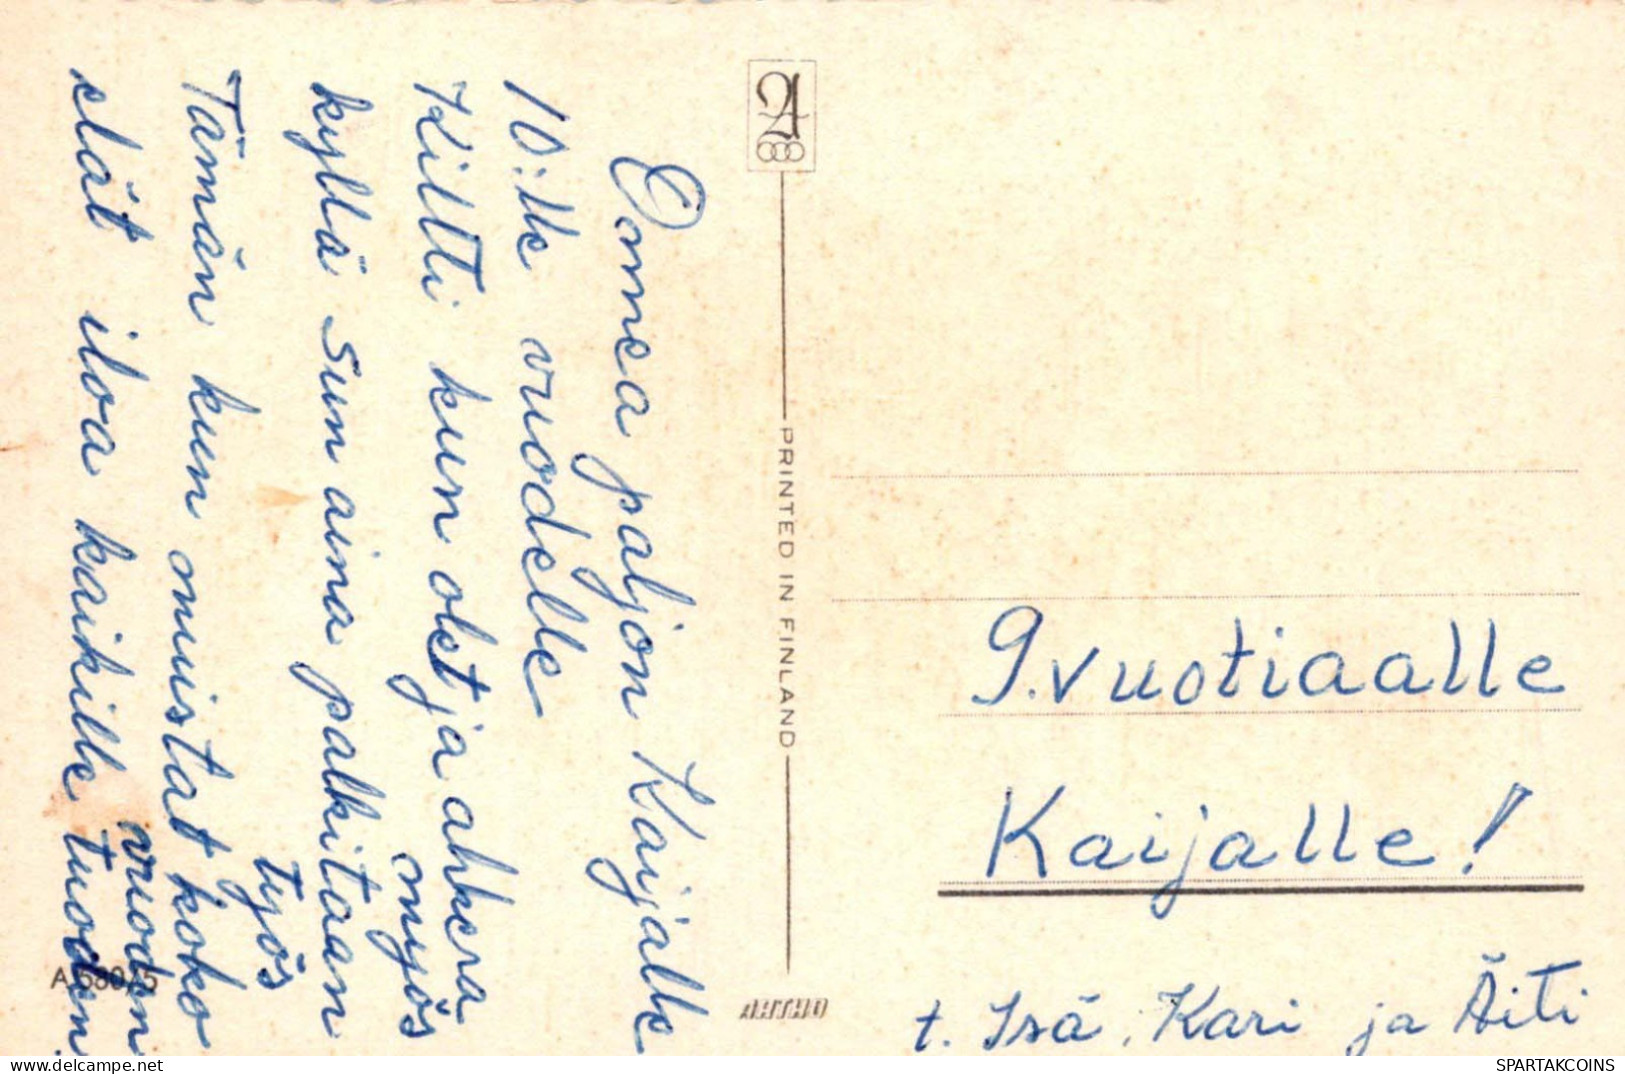 Onnea paljon Kaijalle
10:lle vuodelle
Kiltti kun olet ja ahkera
myös
kyllä sun aina palkitaan
työs
Tämän kun muistat koko
vuoden
elät iloa kaikille tuoden
PRINTED IN FINLAND
9.vuotiaalle
Kaijalle!
t. Isä, Kari ja Äiti
WWW.DELCAMPE.NET
SPARTAKCOINS